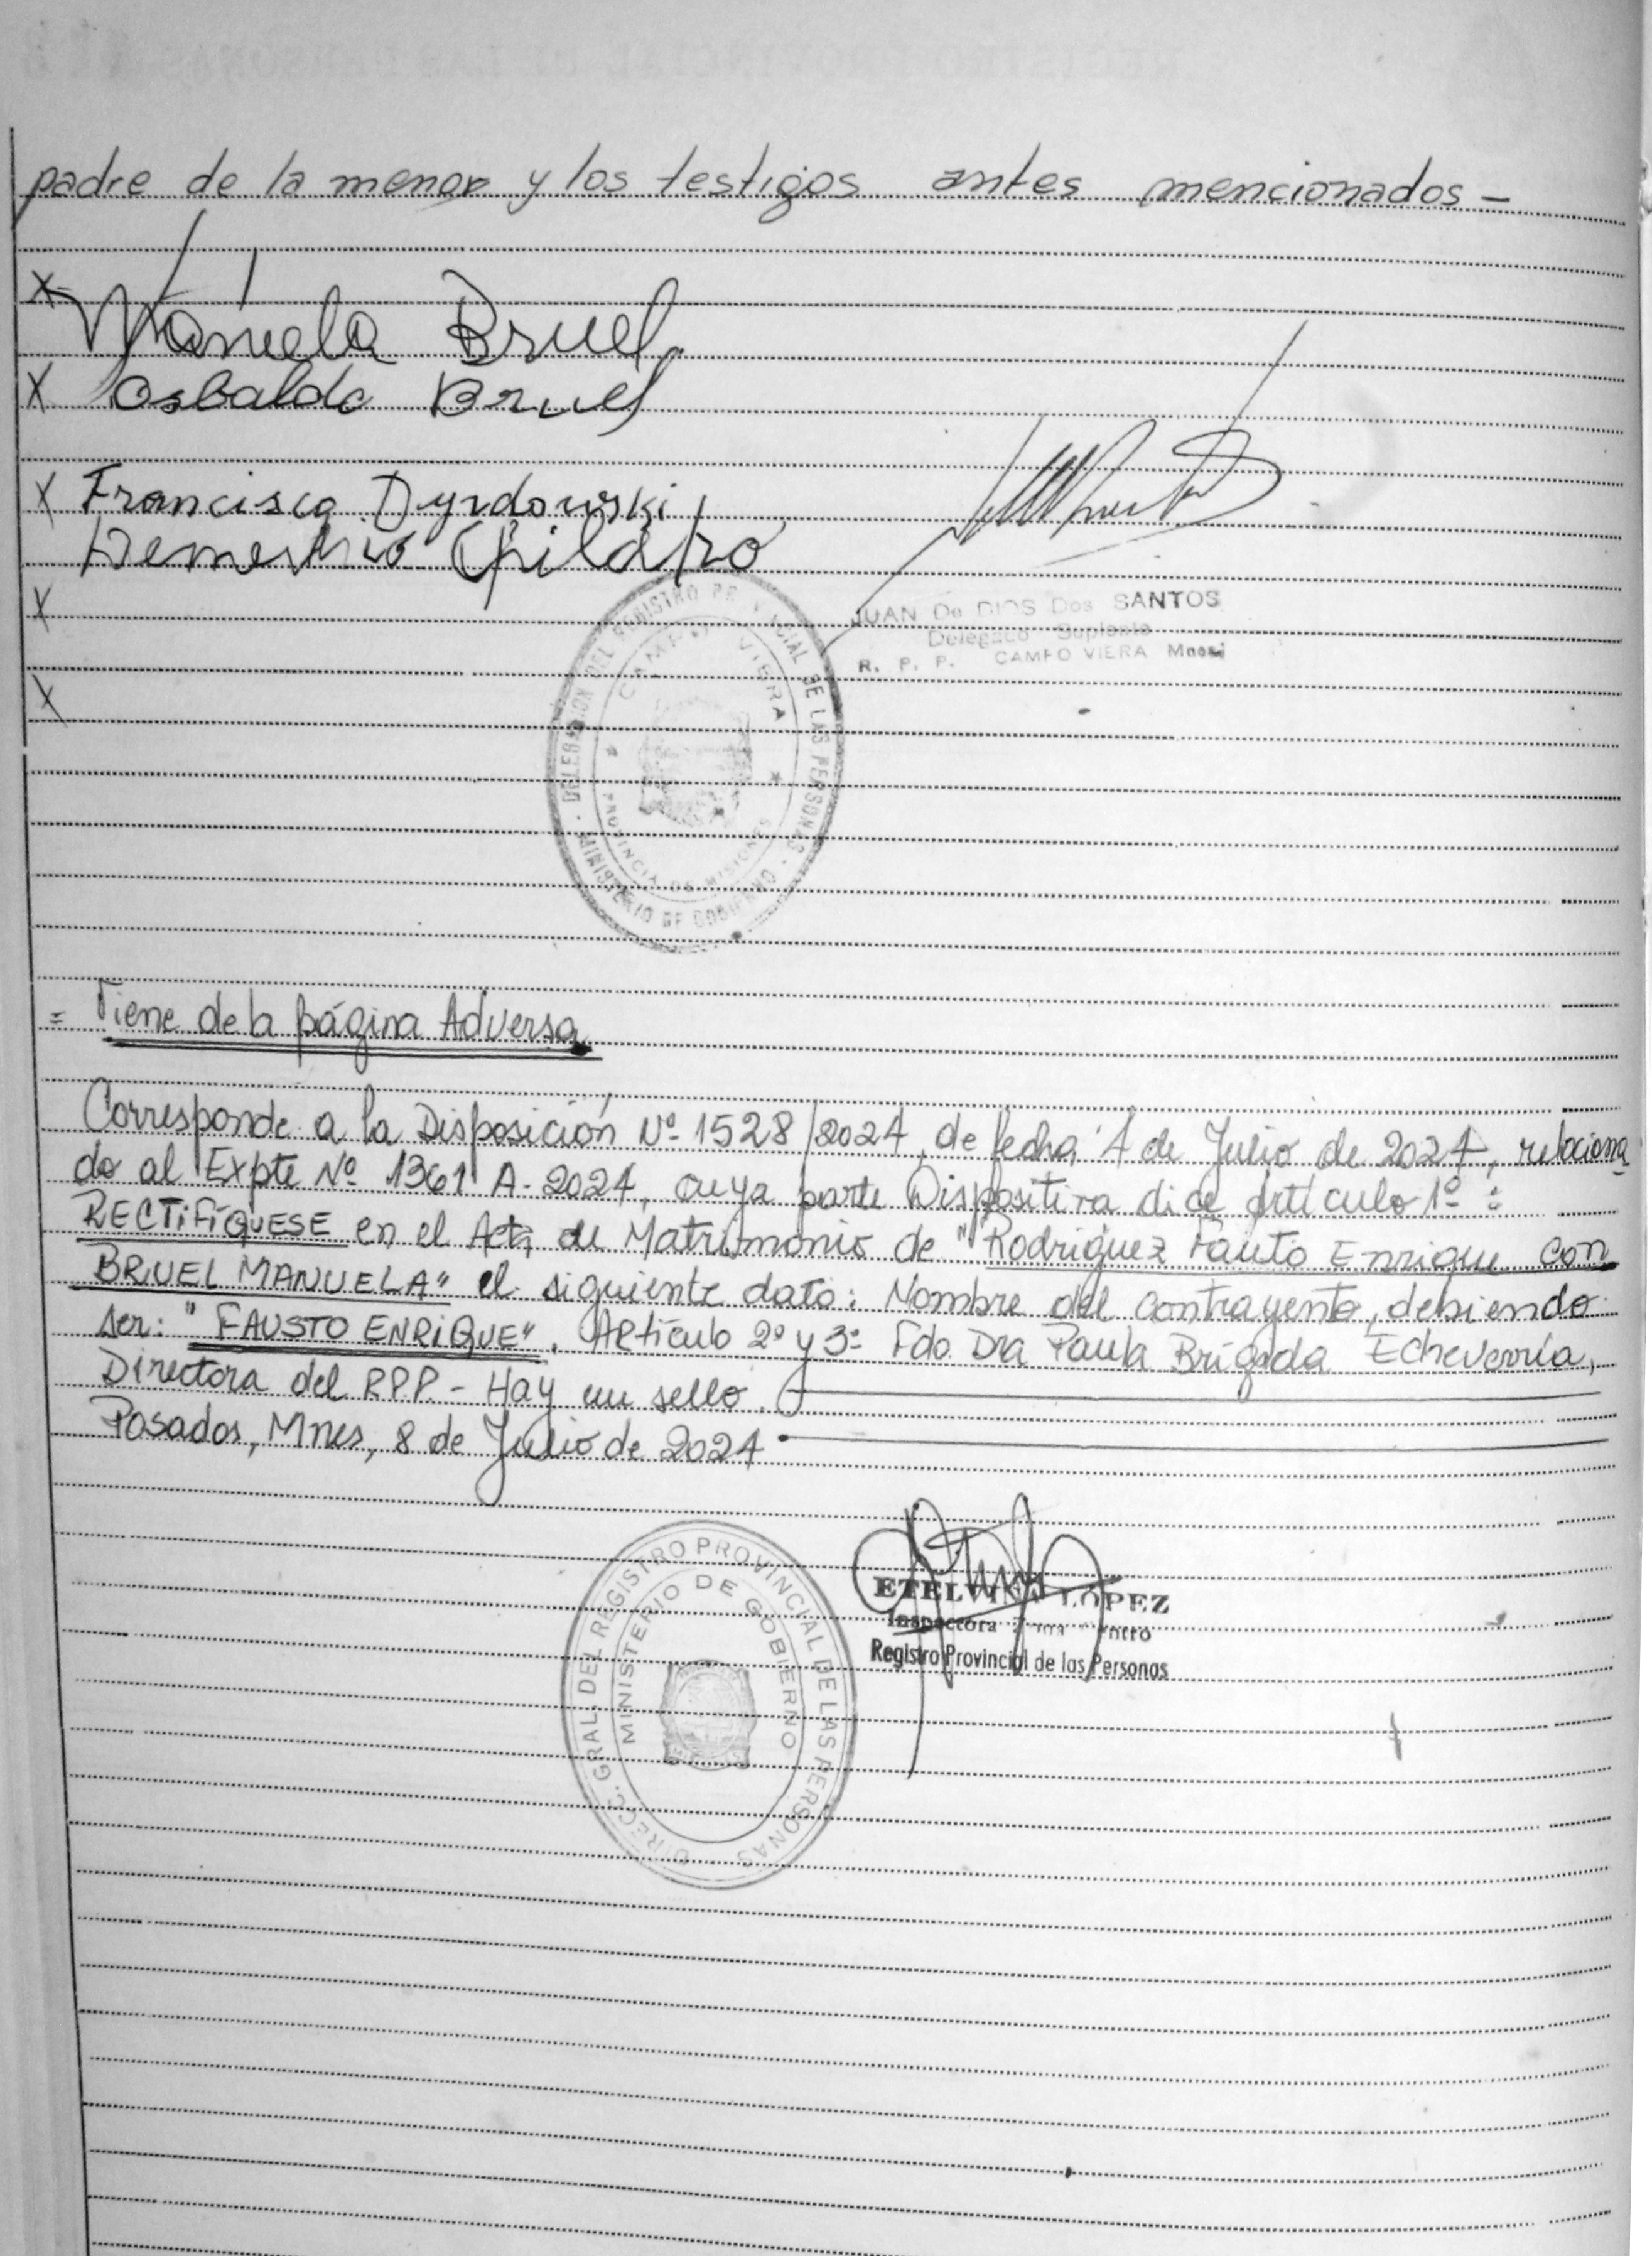 padre de la menor y los testigos antes mencionados -
X Manuela Bruel
X Osbaldo Bruel
X Francisco Dyrdowski
Demetrio
X
X
JUAN De DIOS Dos SANTOS
Delegado Suplente
R. P. P. CAMPO VIERA Mnes
DELEGACION DEL REGISTRO PROVINCIAL DE LAS PERSONAS - MINISTERIO DE GOBIERNO -
CAMPO VIERA
PROVINCIA DE MISIONES
= Viene de la página Adversa
Corresponde a la Disposición Nº 1528/2024, de fecha 4 de Julio de 2024, relaciona
do al Expte Nº 1361 A-2024, cuya parte Dispositiva dice Artículo 1º :
RECTIFÍQUESE en el Acta de Matrimonio de "Rodríguez Fauto Enrique con
BRUEL MANUELA" el siguiente dato: Nombre del contrayente, debiendo
ser: "FAUSTO ENRIQUE". Artículo 2º y 3º Fdo. Dra Paula Brígida Echeverría,
Directora del R.P.P. - Hay un sello.
Posadas, Mnes, 8 de Julio de 2024
ETELVINA LOPEZ
Inspectora
Registro Provincial de las Personas
DIRECC. GRAL. DEL REGISTRO PROVINCIAL DE LAS PERSONAS
MINISTERIO DE GOBIERNO